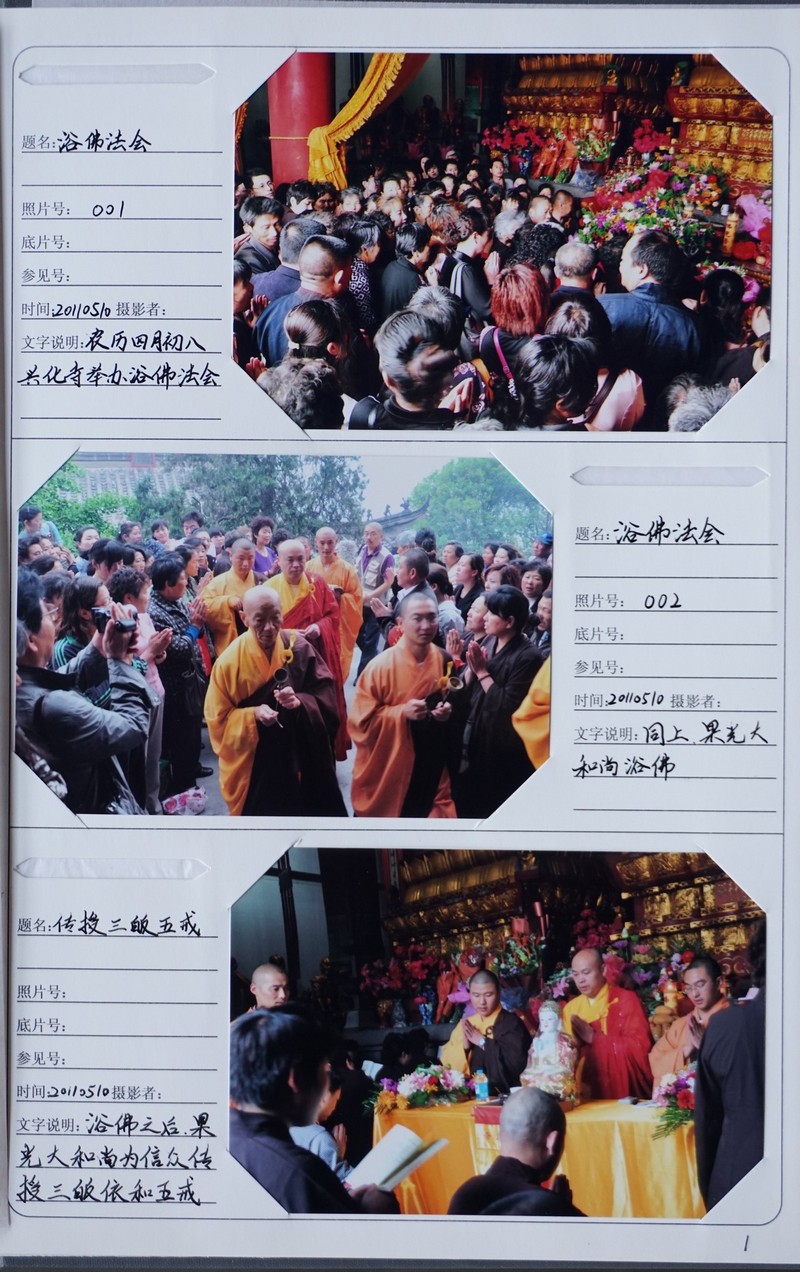 题名:浴佛法会
照片号: 001
底片号:
参见号:
时间:20110510 摄影者:
文字说明:农历四月初八
兴化寺举办浴佛法会
题名:浴佛法会
照片号: 002
底片号:
参见号:
时间:20110510 摄影者:
文字说明:同上、果光大
和尚浴佛
题名:传授三皈五戒
照片号:
底片号:
参见号:
时间:20110510 摄影者:
文字说明:浴佛之后,果
光大和尚为信众传
授三皈依和五戒
1